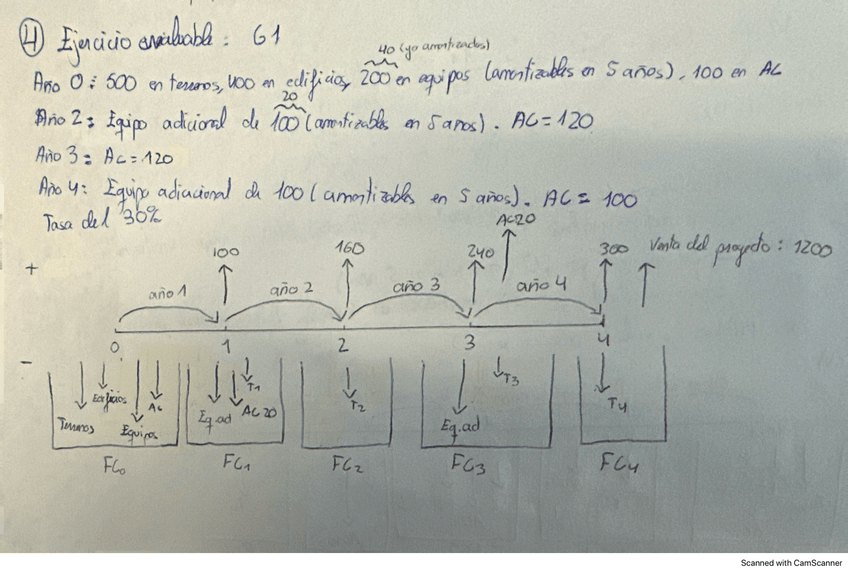 ④ Ejercicio evaluable: G1
40 (ya amortizados)
Año 0: 500 en terrenos, 400 en edificios, 200 en equipos (amortizables en 5 años), 100 en AC
20
Año 2: Equipo adicional de 100 (amortizables en 5 años). AC = 120
Año 3: AC = 120
Año 4: Equipo adiacional de 100 (amortizables en 5 años). AC = 100
Tasa del 30%
AC20
100 160 240 300 Venta del proyecto: 1200
+
año 1 año 2 año 3 año 4
0 1 2 3 4
-
Edificios AC T1 T3
Terrenos Equipos Eq.ad AC 20 T2 Eq.ad T4
FC0 FC1 FC2 FC3 FC4
Scanned with CamScanner